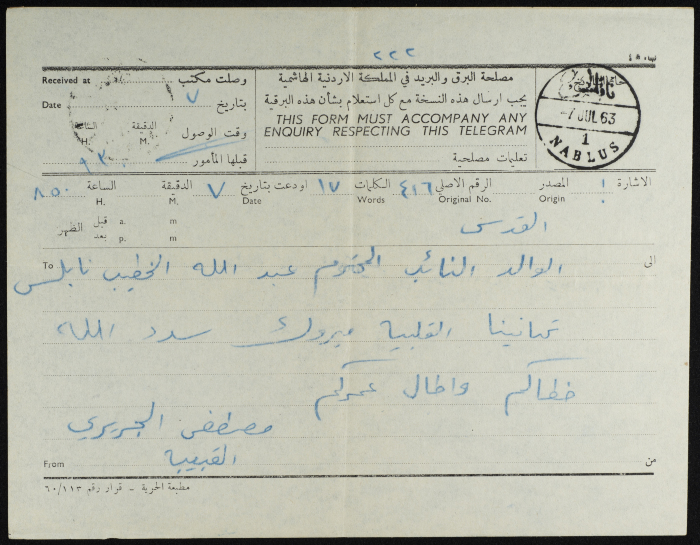 ٢٢٢
Received at وصلت مكتب
Date بتاريخ ٧
الساعة الدقيقة وقت الوصول
H. M.
٩٣٠ قبلها المأمور
مصلحة البرق والبريد في المملكة الاردنية الهاشمية
يجب ارسال هذه النسخة مع كل استعلام بشأن هذه البرقية
THIS FORM MUST ACCOMPANY ANY
ENQUIRY RESPECTING THIS TELEGRAM
تعليمات مصلحية
نابلس
-7 JUL 63
1
NABLUS
الاشارة ! المصدر ٤١٦ الرقم الاصلي ١٧ الكلمات اودعت بتاريخ ٧ الدقيقة الساعة ٨٥٠
Origin Original No. Words Date M. H.
القدس
قبل a. m
الظهر
بعد p. m
الى الوالد النائب المحترم عبد الله الخطيب نابلس To
تهانينا القلبية مبروك سدد الله
خطاكم واطال عمركم
مصطفى الجريري
From القبيبة من
مطبعة الحرية - قرار رقم ٦٠/١١٣